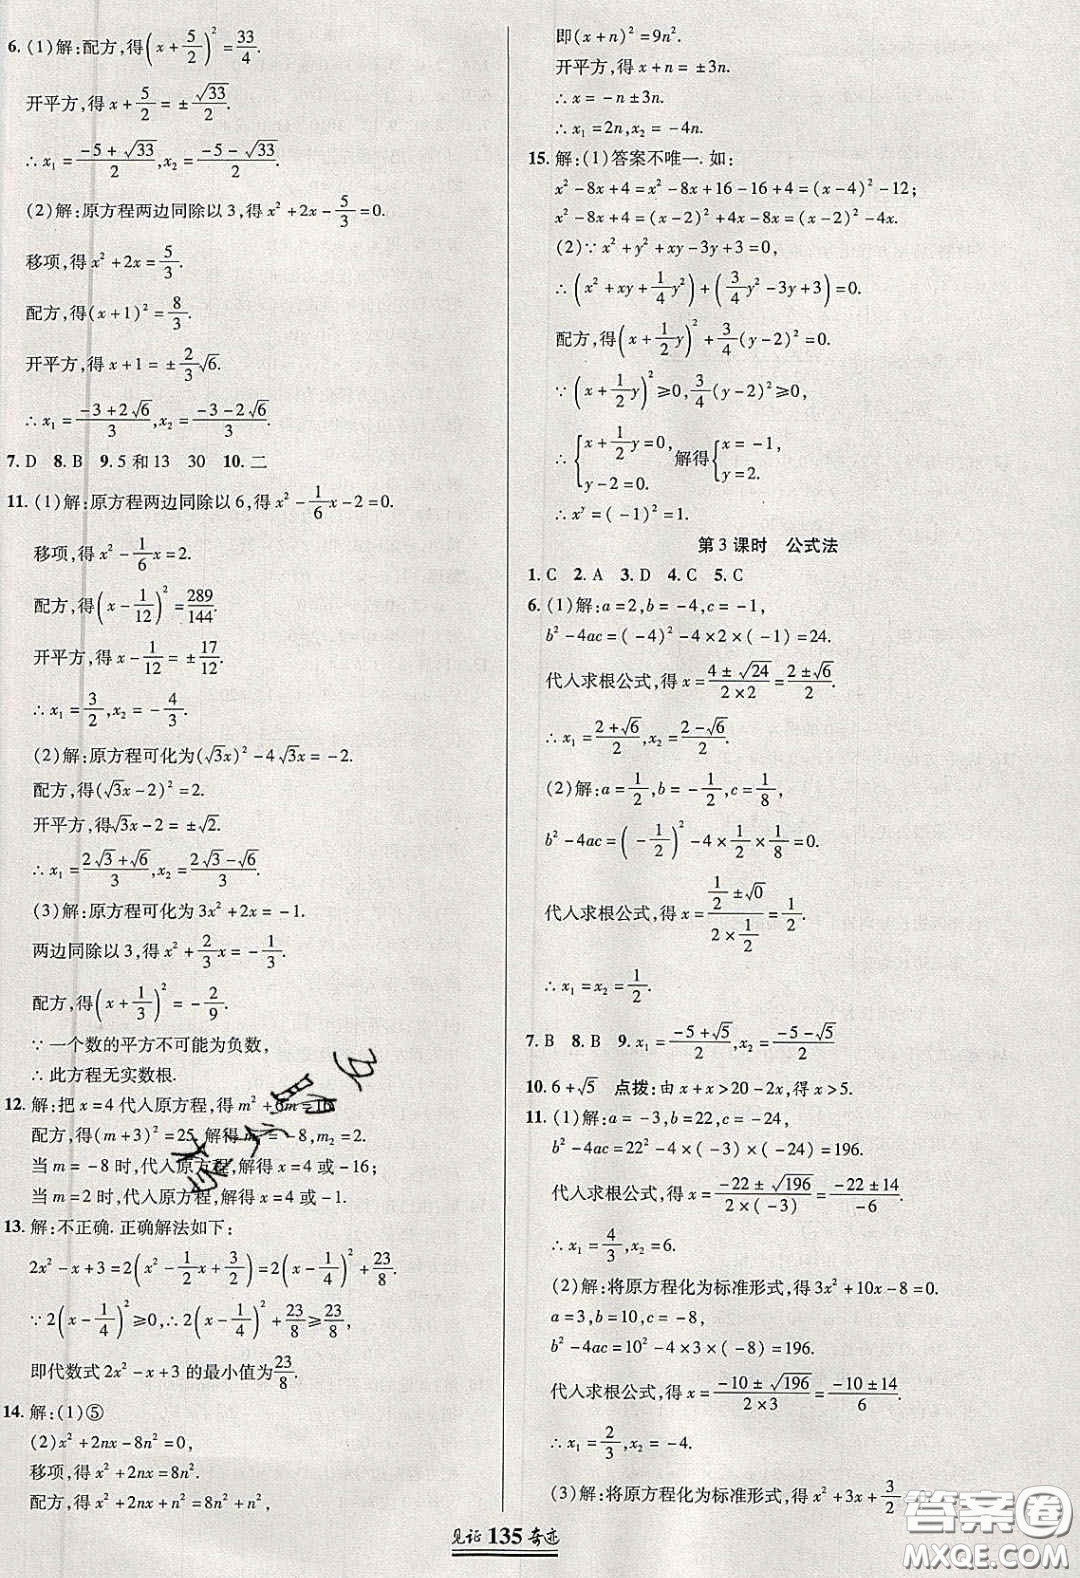 6. (1)解:配方,得(x+5/2)²=33/4.
开平方,得x+5/2=±√33/2.
∴x₁=(-5+√33)/2,x₂=(-5-√33)/2.
(2)解:原方程两边同除以3,得x²+2x-5/3=0.
移项,得x²+2x=5/3.
配方,得(x+1)²=8/3.
开平方,得x+1=±2/3√6.
∴x₁=(-3+2√6)/3,x₂=(-3-2√6)/3.
7. D 8. B 9. 5和13 30 10. 二
11. (1)解:原方程两边同除以6,得x²-1/6x-2=0.
移项,得x²-1/6x=2.
配方,得(x-1/12)²=289/144.
开平方,得x-1/12=±17/12.
∴x₁=3/2,x₂=-4/3.
(2)解:原方程可化为(√3x)²-4√3x=-2.
配方,得(√3x-2)²=2.
开平方,得√3x-2=±√2.
∴x₁=(2√3+√6)/3,x₂=(2√3-√6)/3.
(3)解:原方程可化为3x²+2x=-1.
两边同除以3,得x²+2/3x=-1/3.
配方,得(x+1/3)²=-2/9.
∵一个数的平方不可能为负数,
∴此方程无实数根.
12. 解:把x=4代入原方程,得m²+6m=16
配方,得(m+3)²=25,解得m₁=-8,m₂=2.
当m=-8时,代入原方程,解得x=4或-16;
当m=2时,代入原方程,解得x=4或-1.
13. 解:不正确. 正确解法如下:
2x²-x+3=2(x²-1/2x+3/2)=2(x-1/4)²+23/8.
∵2(x-1/4)²≥0,∴2(x-1/4)²+23/8≥23/8,
即代数式2x²-x+3的最小值为23/8.
14. 解:(1)⑤
(2)x²+2nx-8n²=0,
移项,得x²+2nx=8n².
配方,得x²+2nx+n²=8n²+n²,
即(x+n)²=9n².
开平方,得x+n=±3n.
∴x=-n±3n.
∴x₁=2n,x₂=-4n.
15. 解:(1)答案不唯一. 如:
x²-8x+4=x²-8x+16-16+4=(x-4)²-12;
x²-8x+4=(x-2)²+4x-8x=(x-2)²-4x.
(2)∵x²+y²+xy-3y+3=0,
∴(x²+xy+1/4y²)+(3/4y²-3y+3)=0.
配方,得(x+1/2y)²+3/4(y-2)²=0.
∵(x+1/2y)²≥0,3/4(y-2)²≥0,
∴{x+1/2y=0, y-2=0. 解得{x=-1, y=2.
∴xʸ=(-1)²=1.
第3课时 公式法
1. C 2. A 3. D 4. C 5. C
6. (1)解:a=2,b=-4,c=-1,
b²-4ac=(-4)²-4×2×(-1)=24.
代入求根公式,得x=(4±√24)/(2×2)=(2±√6)/2.
∴x₁=(2+√6)/2,x₂=(2-√6)/2.
(2)解:a=1/2,b=-1/2,c=1/8,
b²-4ac=(-1/2)²-4×1/2×1/8=0.
代入求根公式,得x=(1/2±√0)/(2×1/2)=1/2.
∴x₁=x₂=1/2.
7. B 8. B 9. x₁=(-5+√5)/2,x₂=(-5-√5)/2
10. 6+√5 点拨:由x+x>20-2x,得x>5.
11. (1)解:a=-3,b=22,c=-24,
b²-4ac=22²-4×(-3)×(-24)=196.
代入求根公式,得x=(-22±√196)/(2×(-3))=(-22±14)/-6.
∴x₁=4/3,x₂=6.
(2)解:将原方程化为标准形式,得3x²+10x-8=0.
a=3,b=10,c=-8,
b²-4ac=10²-4×3×(-8)=196.
代入求根公式,得x=(-10±√196)/(2×3)=(-10±14)/6.
∴x₁=2/3,x₂=-4.
(3)解:将原方程化为标准形式,得x²+3x+3/2
见证 135 奇迹
答案圈
MXQE.COM